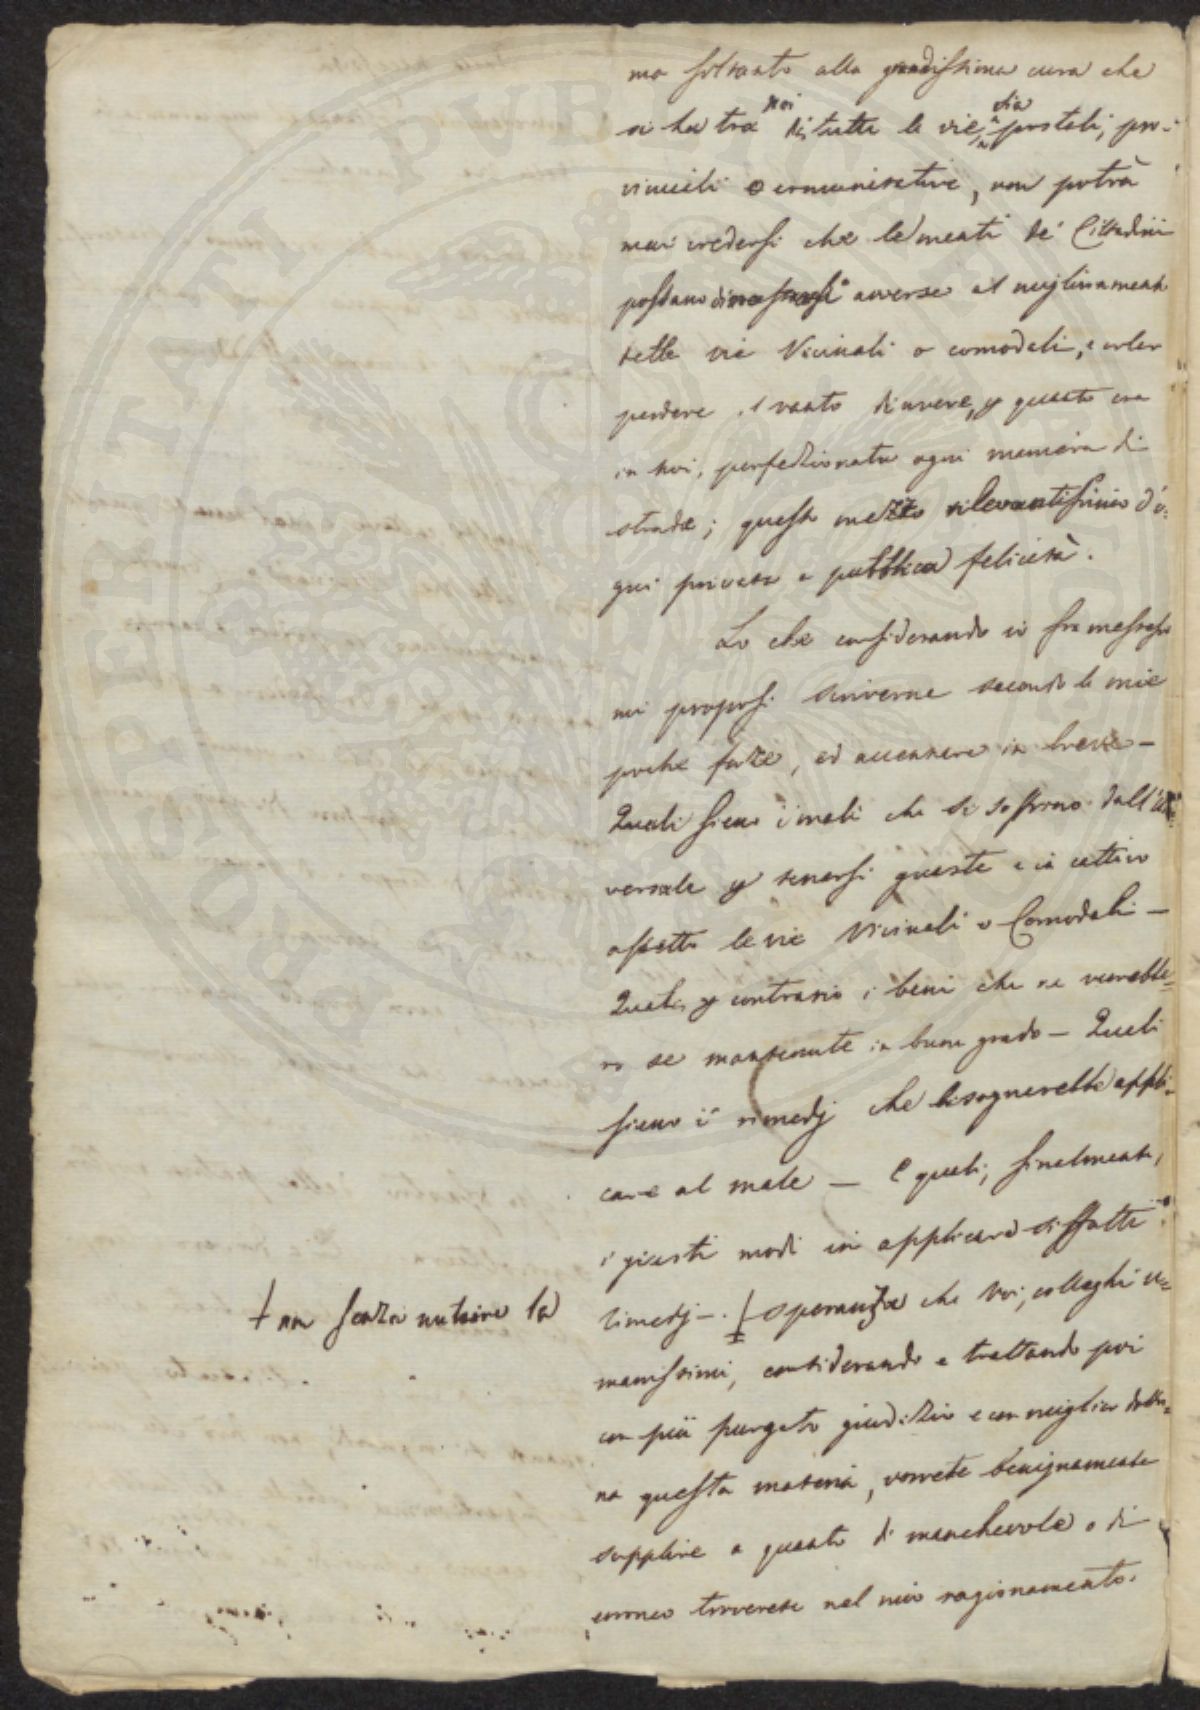 mo soltanto alla grandissima cura che
si ha tra noi di tutte le vie, sia postali, pro-
vinciali o comunicative, non potrà
mai credersi che le menti de' Cittadini
possano avverse al miglioramento
delle vie Vicinali o comodali, e voler
perdere il vanto di avere, p questo era
in noi, perfezionata ogni maniera di
strade; questo mezzo rilevantissimo d'o-
gni privata e pubblica felicità.
Lo che considerando io fra me stesso
mi proposi scriverne secondo le mie
poche forze, ed accennare in breve —
Quali sieno i mali che si soffrono dall'
versale p tenersi guaste e in cattivo
assetto le vie Vicinali o Comodali —
Quali, p contrario i beni che ne verrebbe-
ro se mantenute in buon grado — Quali
sieno i rimedj che bisognerebbe appli-
care al male — E quali, finalmente,
i giusti modi in applicare siffatti
rimedj —. † speranza che Voi, colleghi u-
manissimi, considerando e trattando poi
con più purgato giudizio e con miglior dottri-
na questa materia, vorrete benignamente
supplire a quanto di manchevole o di
erroneo troverete nel mio ragionamento.
† non senza nutrire la